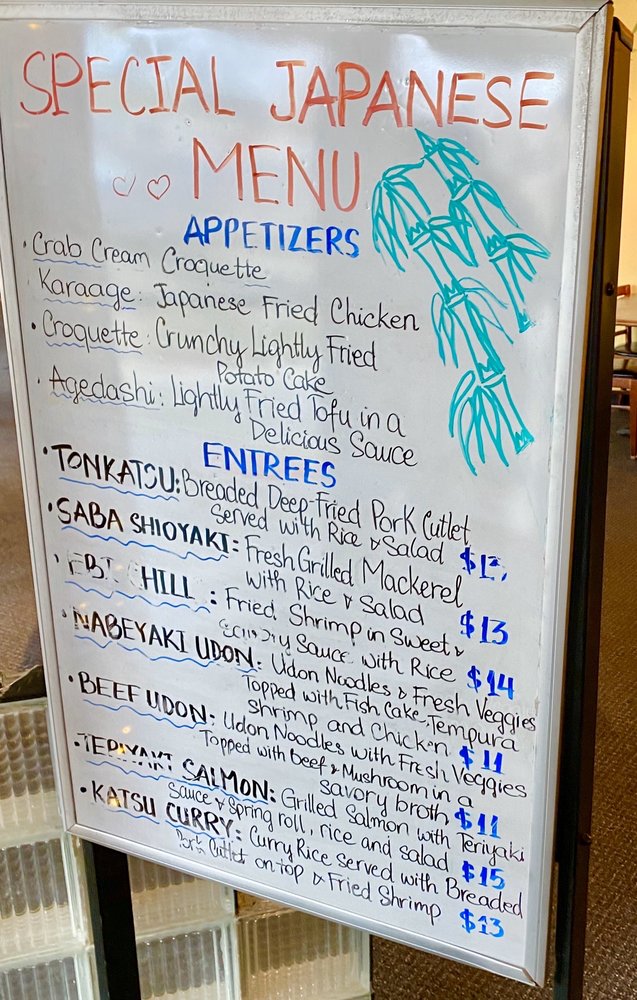 SPECIAL JAPANESE
MENU
APPETIZERS
· Crab Cream Croquette
Karaage: Japanese Fried Chicken
· Croquette: Crunchy Lightly Fried
Potato Cake
· Agedashi: Lightly Fried Tofu in a
Delicious Sauce
ENTREES
· TONKATSU: Breaded Deep-Fried Pork Cutlet
Served with Rice & Salad
· SABA SHIOYAKI: Fresh Grilled Mackerel
with Rice & Salad $13
: Fried Shrimp in Sweet &
Sauce with Rice $14
· NABEYAKI UDON: Udon Noodles & Fresh Veggies
Topped with Fish Cake-Tempura
Shrimp and Chicken $11
· BEEF UDON: Udon Noodles with Fresh Veggies
Topped with Beef & Mushroom in a
savory broth $11
· TERIYAKI SALMON: Grilled Salmon with Teriyaki
Sauce & Spring roll, rice and salad $15
· KATSU CURRY: Curry Rice Served with Breaded
Pork Cutlet on Top & Fried Shrimp $13